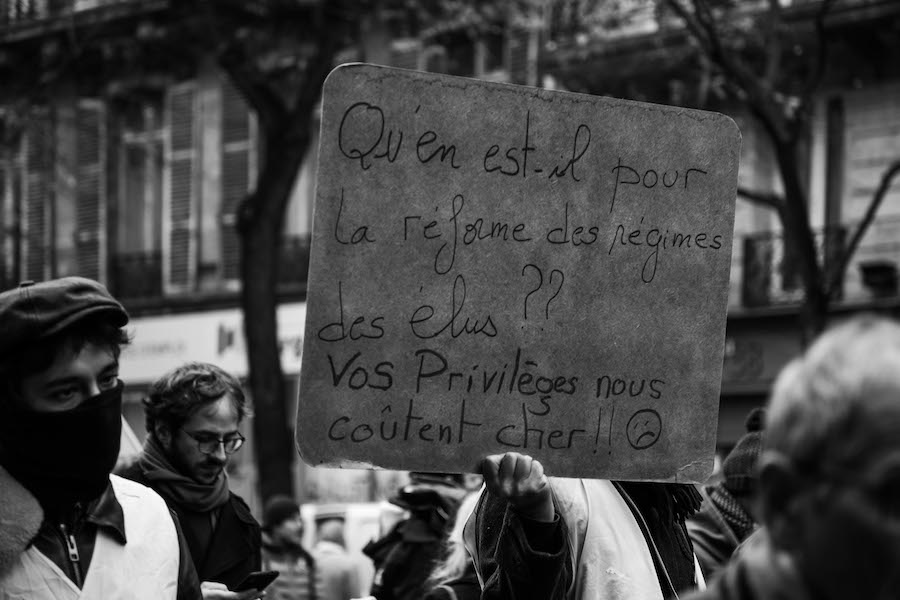 Qu'en est-il pour
la réforme des régimes
des élus ??
Vos Privilèges nous
coûtent cher !!